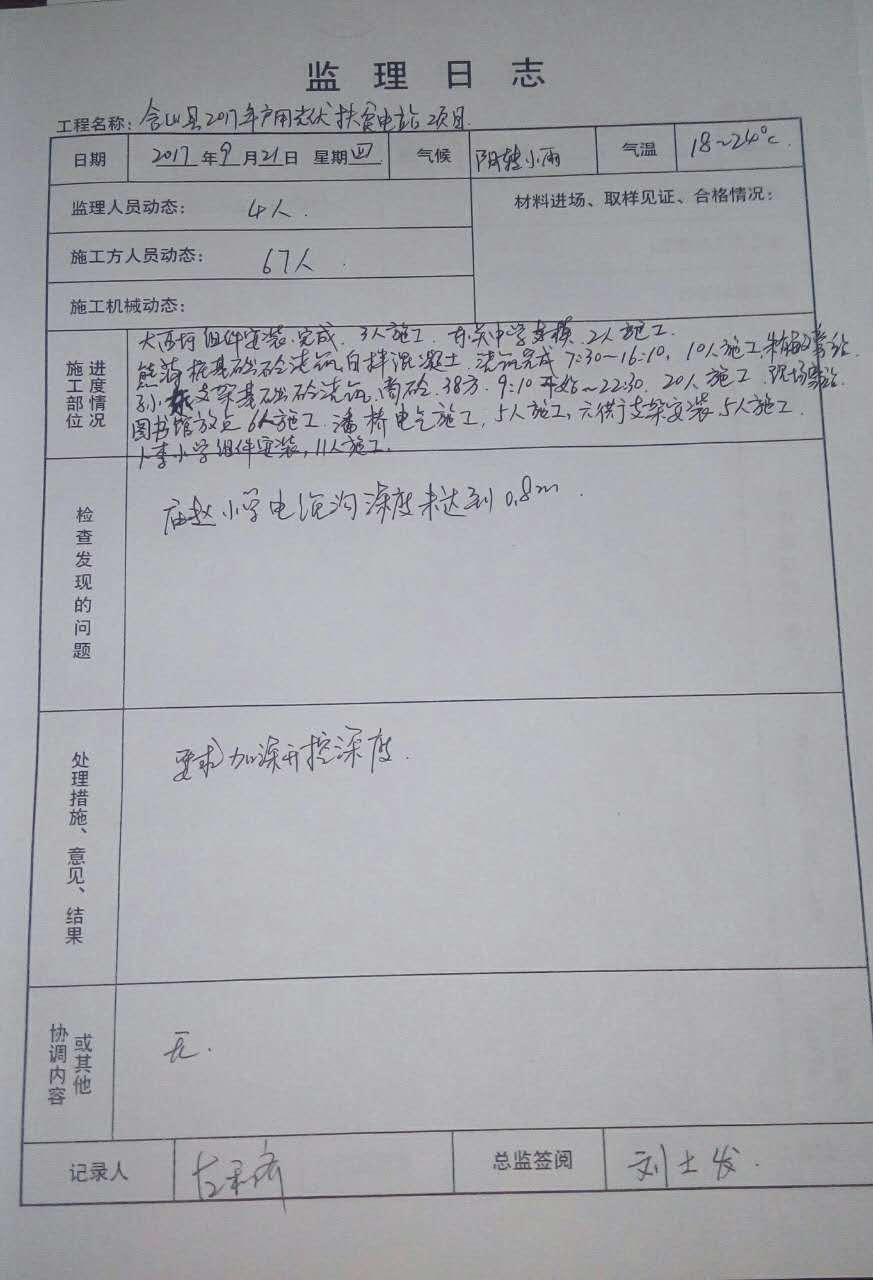 监理日志
工程名称：含山县2017年户用光伏扶贫电站项目
日期 2017年9月21日 星期四 气候 阴转小雨 气温 18～24℃
监理人员动态： 4人. 材料进场、取样见证、合格情况：
施工方人员动态： 67人.
施工机械动态：
进度情况 施工部位
大西圩组件安装.完成. 3人施工. 中学支模. 2人施工.
桩基础砼浇筑,自拌混凝土.浇筑完成 7:30~16:10, 10人施工
孙 支架基础砼浇筑,商砼.38方. 9:10开始~22:30. 20人施工.现场旁站.
图书馆放点6人施工.潘桥电气施工, 5人施工,六供厅支架安装.5人施工.
卜李小学组件安装,11人施工.
检查发现的问题
庙赵小学电缆沟深度未达到0.8m.
处理措施、意见、结果
要求加深开挖深度.
协调内容或其他
无.
记录人 总监签阅 刘士发.